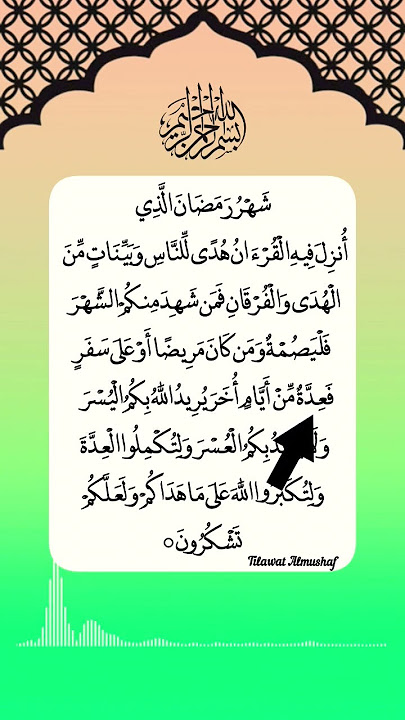 بسم الله الرحمن الرحيم
شَهْرُ رَمَضَانَ الَّذِي
أُنزِلَ فِيهِ الْقُرْءَانُ هُدًى لِّلنَّاسِ وَبَيِّنَاتٍ مِّنَ
الْهُدَى وَالْفُرْقَانِ فَمَن شَهِدَ مِنكُمُ الشَّهْرَ
فَلْيَصُمْهُ وَمَن كَانَ مَرِيضًا أَوْ عَلَى سَفَرٍ
فَعِدَّةٌ مِّنْ أَيَّامٍ أُخَرَ يُرِيدُ اللَّهُ بِكُمُ الْيُسْرَ
بِكُمُ الْعُسْرَ وَلِتُكْمِلُوا الْعِدَّةَ
وَلِتُكَبِّرُوا اللَّهَ عَلَى مَا هَدَاكُمْ وَلَعَلَّكُمْ
تَشْكُرُونَ ○
Tilawat Almushaf